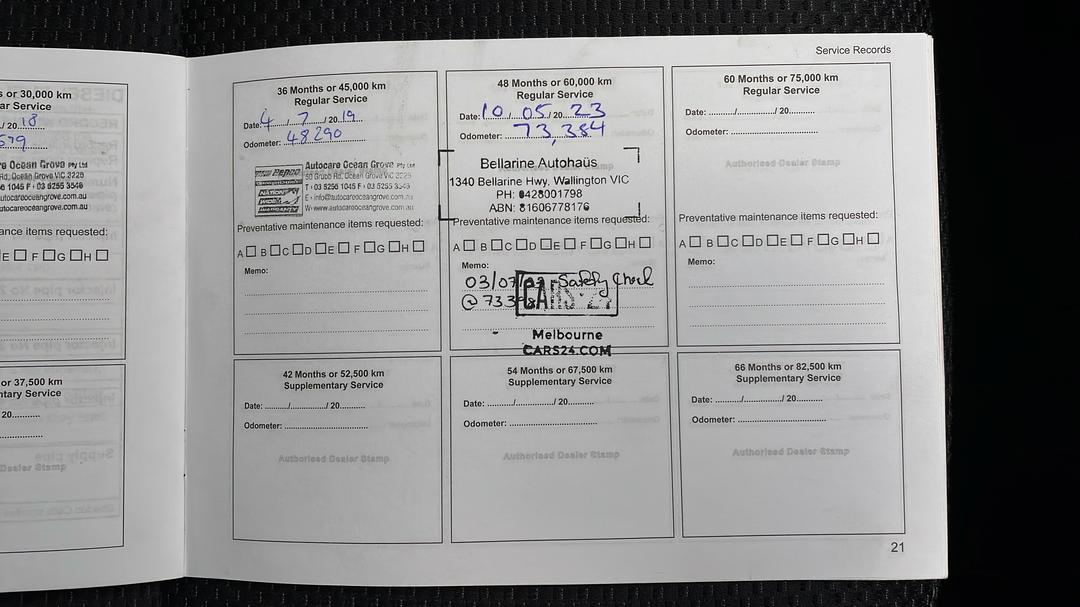 Service Records
s or 30,000 km
ar Service
/ 20 18
579
re Ocean Grove Pty Ltd
Rd, Ocean Grove VIC 3226
6 1045 F • 03 5255 3546
utocareoceangrove.com.au
utocareoceangrove.com.au
ance items requested:
E F G H
or 37,500 km
ntary Service
20
Dealer Stamp
36 Months or 45,000 km
Regular Service
Date: 4 / 7 / 20 19
Odometer: 48290
Pepco
NATION
WIDE
WARRANTY
Autocare Ocean Grove Pty Ltd
Grubb Rd, Ocean Grove VIC
T • 03 5256 1045 F • 03 5255
E • info@autocareoceangrove.com.au
W • www.autocareoceangrove.com.au
Preventative maintenance items requested:
A B C D E F G H
Memo:
48 Months or 60,000 km
Regular Service
Date: 10 / 05 / 20 23
Odometer: 73,384
Bellarine Autohaüs
1340 Bellarine Hwy, Wallington VIC
PH: 0428001798
ABN: 81606778176
Preventative maintenance items requested:
A B C D E F G H
Memo:
03/07/ Safety Check
@ 73398
CARS 24
Melbourne
CARS24.COM
60 Months or 75,000 km
Regular Service
Date: / / 20
Odometer:
Authorised Dealer Stamp
Preventative maintenance items requested:
A B C D E F G H
Memo:
42 Months or 52,500 km
Supplementary Service
Date: / / 20
Odometer:
Authorised Dealer Stamp
54 Months or 67,500 km
Supplementary Service
Date: / / 20
Odometer:
Authorised Dealer Stamp
66 Months or 82,500 km
Supplementary Service
Date: / / 20
Odometer:
Authorised Dealer Stamp
21